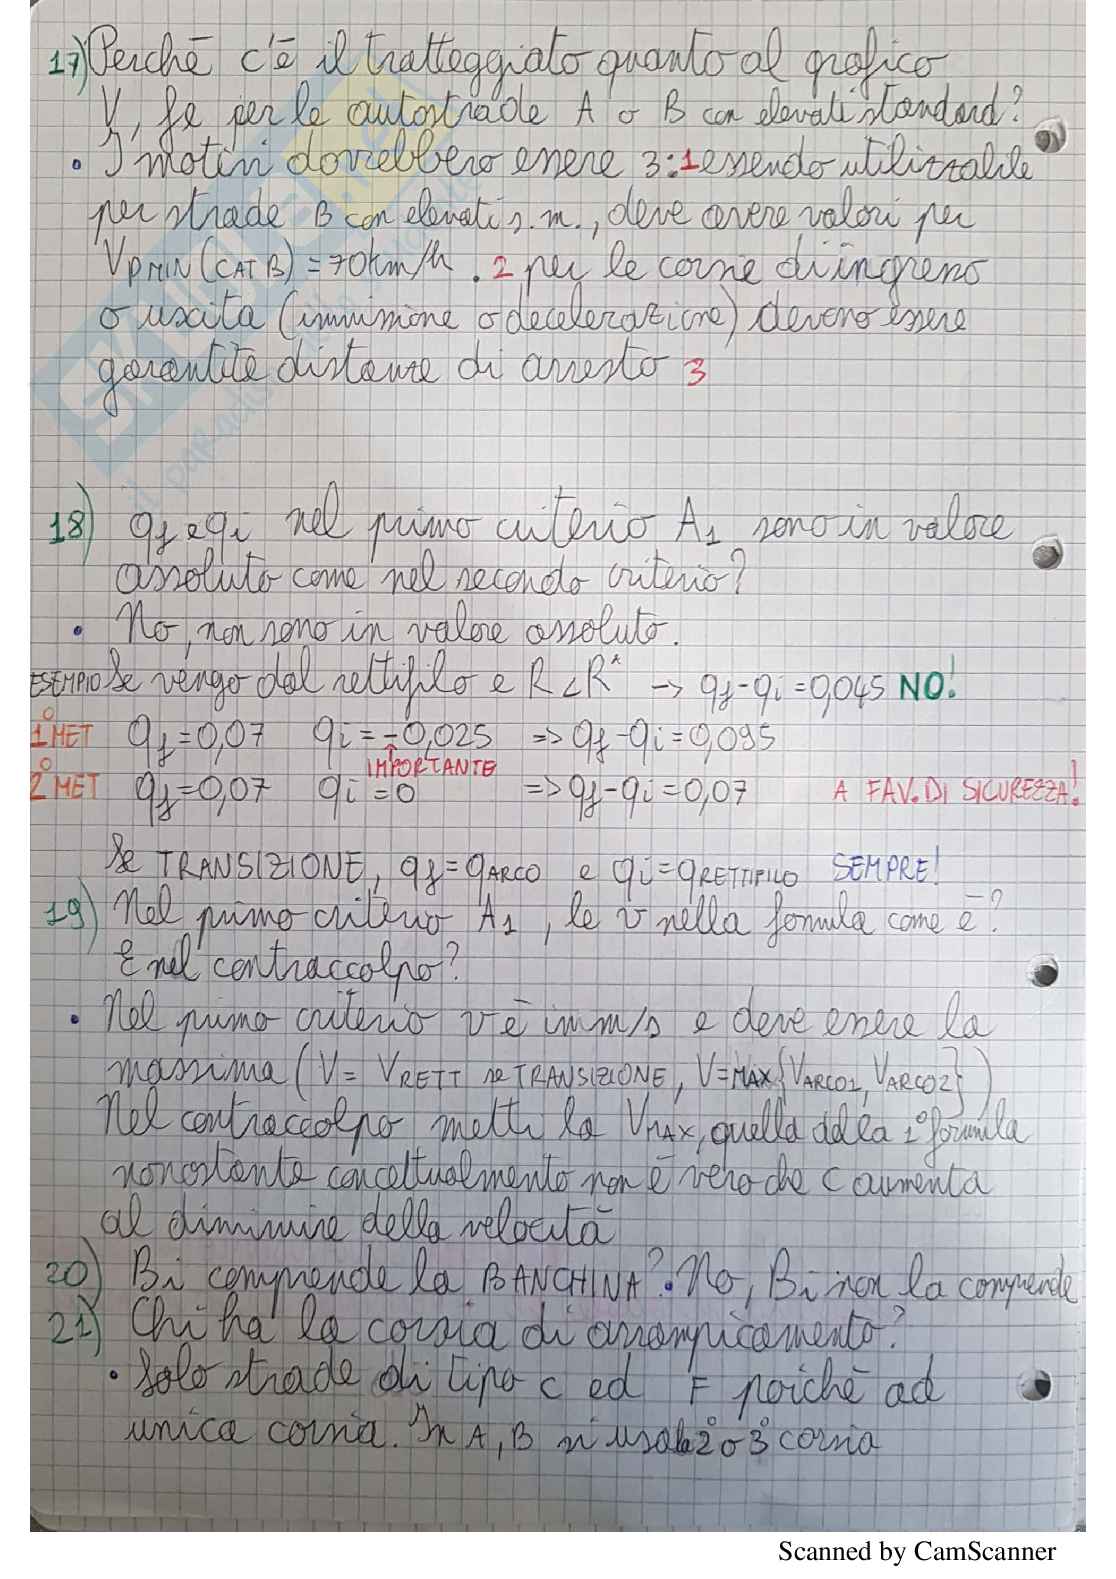 17) Perché c'è il tratteggiato quanto al grafico
V, fe per le autostrade A o B con elevati standard?
• I motivi dovrebbero essere 3: 1 essendo utilizzabile
per strade B con elevati s.m., deve avere valori per
VPMIN (CAT B) = 70 km/h. 2 per le corsie di ingresso
o uscita (immissione o decelerazione) devono essere
garantite distanze di arresto 3
18) qf e qi nel primo criterio A1 sono in valore
assoluto come nel secondo criterio?
• No, non sono in valore assoluto.
ESEMPIO Se vengo dal rettifilo e R < R* → qf - qi = 0,045 NO!
1° MET qf = 0,07 qi = -0,025 => qf - qi = 0,095
IMPORTANTE
2° MET qf = 0,07 qi = 0 => qf - qi = 0,07 A FAV. DI SICUREZZA!
Se TRANSIZIONE, qf = qARCO e qi = qRETTIFILO SEMPRE!
19) Nel primo criterio A1, le v nella formula come è?
E nel contraccolpo?
• Nel primo criterio v è in m/s e deve essere la
massima (V = VRETT se TRANSIZIONE, V = MAX{VARCO1, VARCO2})
Nel contraccolpo metti la VMAX, quella della 1° formula
nonostante concettualmente non è vero che c aumenta
al diminuire della velocità
20) Bi comprende la BANCHINA? • No, Bi non la comprende
21) Chi ha la corsia di arrampicamento?
• Solo strade di tipo C ed F poiché ad
unica corsia. In A, B si usa la 2° o 3° corsia
Scanned by CamScanner